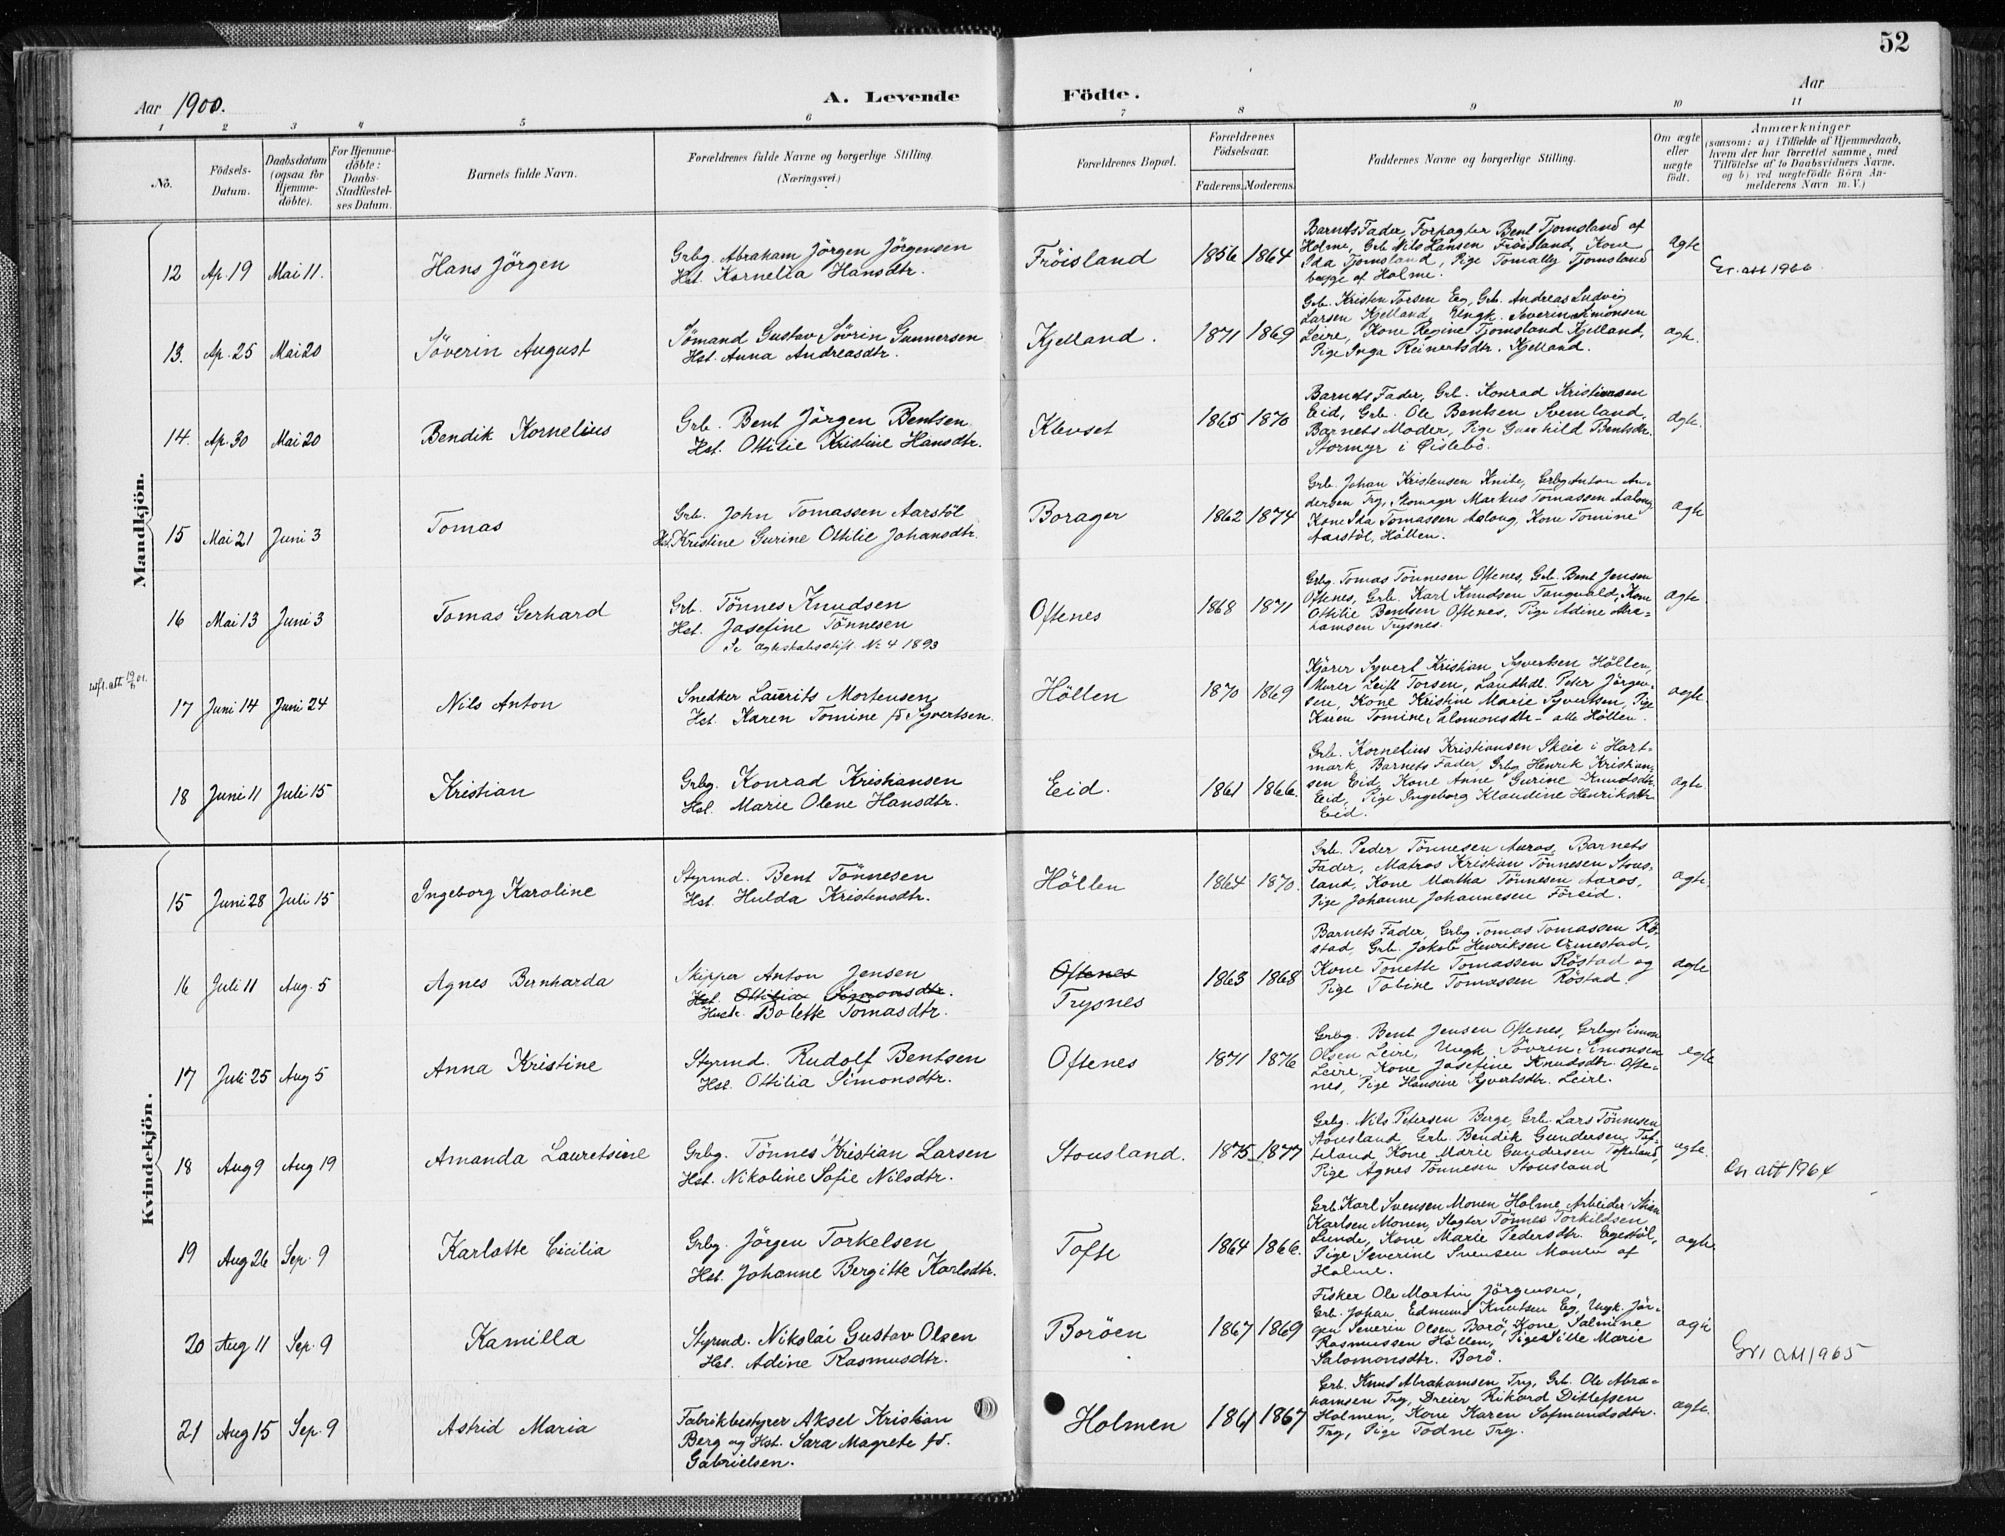 52
Aar 1900.
A. Levende Födte.
Aar
1 2 3 4 5 6 7 8 9 10 11
No.
Födsels-
Datum.
Daabsdatum
(ogsaa for
Hjemme-
döbte).
For Hjemme-
döbte:
Daabs-
Stadfæstel-
ses Datum.
Barnets fulde Navn.
Forældrenes fulde Navne og borgerlige Stilling
(Næringsvei.)
Forældrenes Bopæl.
Forældrenes
Födselsaar.
Faderens. Moderens.
Faddernes Navne og borgerlige Stilling.
Om ægte
eller
uægte
födt.
Anmærkninger
(saasom: a) i Tilfælde af Hjemmedaab,
hvem der har forrettet samme, med
Tilföielse af to Daabsvidners Navne,
og b) ved uægtefödte Börn An-
melderens Navn m. V.)
Mandkjön.
12 Ap. 19 Mai 11. Hans Jörgen
Grbg. Abraham Jörgen Jörgensen
Hst. Kornelia Hansdtr.
Fröisland 1856 1864
Barnets Fader, Forpagter Bent Tjomsland af
Holme, Grb Nils Hansen Fröisland, Kone
Ida Tjomsland, Pige Tomally Tjomsland
begge af Holme.
ægte
Gr. att 1966
13. Ap. 25 Mai 20 Söverin August
Sömand Gustav Sövrin Gunnersen
Hst. Anna Andreasdtr.
Kjelland. 1871 1869
Grb. Kristen Torsen Eeg, Grb. Andreas Ludvig
Larsen Kjelland, Ungk. Severin Simonsen
Leire, Kone Regine Tjomsland Kjelland,
Pige Inga Reinertsdtr. Kjelland.
ægte.
14. Ap. 30 Mai 20 Bendik Kornelius
Grb. Bent Jörgen Bentsen
Hst. Ottilie Kristine Hansdtr.
Klevset 1865 1870
Barnets Fader, Grb. Konrad Kristiansen
Eid, Grb. Ole Bentsen Sveinland,
Barnets Moder, Pige Gunhild Bentsdtr.
Stormyr i Øislebö.
ægte.
15 Mai 21 Juni 3 Tomas
Grb. John Tomassen Aarstöl
Hst. Kristine Gurine Ottilie Johansdtr.
Borager 1862 1874
Grb. Johan Kristensen Knibe, Grbg Anton An-
dersen Try, Skomager Markus Tomassen Aalong,
Kone Ida Tomassen Aalong, Kone Tomine
Aarstöl, Höllen.
ægte
16 Mai 13 Juni 3 Tomas Gerhard
Grb. Tönnes Knudsen
Hst. Josefine Tönnesen
Se ægteskabsstift. No 4 1893
Oftenes 1868 1871
Grbg. Tomas Tönnesen Oftenes, Grb. Bent Jensen
Oftenes, Grb. Karl Knudsen Tangvald, Kone
Ottilie Bentsen Oftenes, Pige Adine Abra-
hamsen Trysnes.
ægte
17 Juni 14 Juni 24 Nils Anton
Snedker Laurits Mortensen
Hst. Karen Tomine fö Syvertsen.
Höllen 1870 1869
Kjörer Syvert Kristian Syvertsen Höllen,
Murer Leift Torsen, Landhdl. Peter Jörgen-
sen, Kone Kristine Marie Syvertsen, Pige
Karen Tomine Salomonsdtr – alle Höllen.
ægte
18 Juni 11 Juli 15 Kristian
Grbg. Konrad Kristiansen
Hst. Marie Olene Hansdtr.
Eid. 1861 1866.
Grb. Kornelius Kristiansen Skeie i Hart-
mark, Barnets Fader, Grbg Henrik Kristian-
sen Eid, Kone Anne Gurine Knudsdtr
Eid, Pige Ingeborg Klaudine Henriksdtr
Eid.
ægte.
Kvindekjön.
15 Juni 28 Juli 15 Ingeborg Karoline
Styrmd. Bent Tönnesen
Hst. Hulda Kristensdtr.
Höllen 1864 1870.
Grb. Peder Tönnesen Aaros, Barnets
Fader, Matros Kristian Tönnesen Stous-
land, Kone Martha Tönnesen Aaros,
Pige Johanne Johannesen Föreid.
ægte.
16 Juli 11 Aug. 5 Agnes Bernharda
Skipper Anton Jensen
Hst. Ottilia Simonsdtr.
Hustr. Bolette Tomasdtr.
Oftenes
Trysnes
1863 1868
Barnets Fader, Grbg Tomas Tomassen Rö-
stad, Grb. Jakob Henriksen Ormestad,
Kone Tonette Tomassen Röstad og
Pige Tobine Tomassen Röstad.
ægte
17 Juli 25 Aug 5 Anna Kristine
Styrmd. Rudolf Bentsen
Hst. Ottilia Simonsdtr.
Oftenes 1871 1876
Grbg. Bent Jensen Oftenes, Grbg. Simon
Olsen Leire, Ungk. Sövren Simonsen
Leire, Kone Josefine Knudsdtr. Ofte-
nes, Pige Hansine Syvertsdtr. Leire.
egte
18 Aug 9 Aug 19 Amanda Lauretsine
Grbg. Tönnes Kristian Larsen
Hst. Nikoline Sofie Nilsdtr.
Stousland. 1875 1877
Grbg. Nils Petersen Berge, Grb. Lars Tönnesen
Stousland, Grb. Bendik Gundersen Tof-
teland, Kone Marie Gundersen Tofteland,
Pige Agnes Tönnesen Stousland
ægte.
Gr. att 1964
19 Aug 26 Sep. 9 Karlotte Cicilia
Grbg. Jörgen Torkelsen
Hst. Johanne Bergitte Karlsdtr.
Tofte 1864 1866.
Grb. Karl Svensen Monen Holme, Arbeider Stian
Karlsen Monen, Slagter Tönnes Torkildsen
Lunde, Kone Marie Pedersdtr. Egestöl,
Pige Severine Svensen Monen af
Holme.
ægte.
20 Aug 11 Sep. 9 Kamilla
Styrmd. Nikolai Gustav Olsen
Hst. Adine Rasmusdtr.
Boröen 1867 1869
Fisker Ole Martin Jörgensen,
Grb. Johan Edmund Knutsen Eg, Ungk. Jör-
gen Severin Olsen Borö, Kone Salmine
Rasmussen Höllen, Pige Sille Marie
Salomonsdtr. Borö.
ægte
Gr. att 1965
21 Aug 15 Sep. 9 Astrid Maria
Fabrikbestyrer Aksel Kristian
Berg og Hst. Sara Magrete fd.
Gabrielsen.
Holmen 1861 1867
Grb. Knud Abrahamsen Try, Grb. Ole Abra-
hamsen Try, Dreier Rikard Ditlefsen
Holmen, Kone Karen Sofmundsdtr.
Try, Pige Todne Try.
ægte.